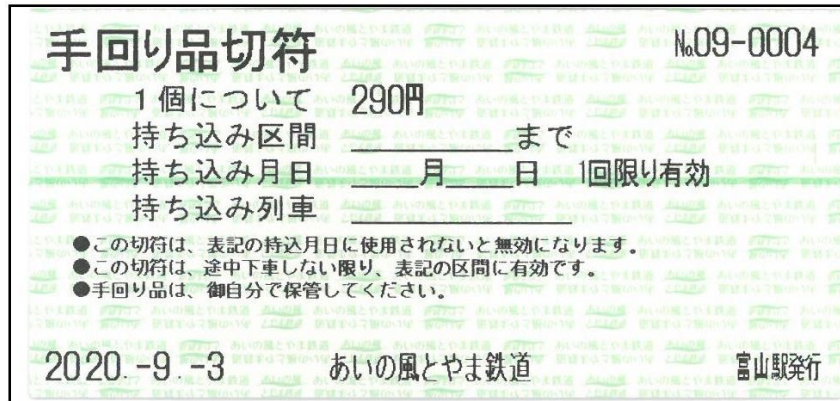 手回り品切符 №09-0004
1個について 290円
持ち込み区間 ＿＿＿＿＿まで
持ち込み月日 ＿＿月＿＿日 1回限り有効
持ち込み列車 ＿＿＿＿＿＿＿
●この切符は、表記の持込月日に使用されないと無効になります。
●この切符は、途中下車しない限り、表記の区間に有効です。
●手回り品は、御自分で保管してください。
2020.-9.-3 あいの風とやま鉄道 富山駅発行